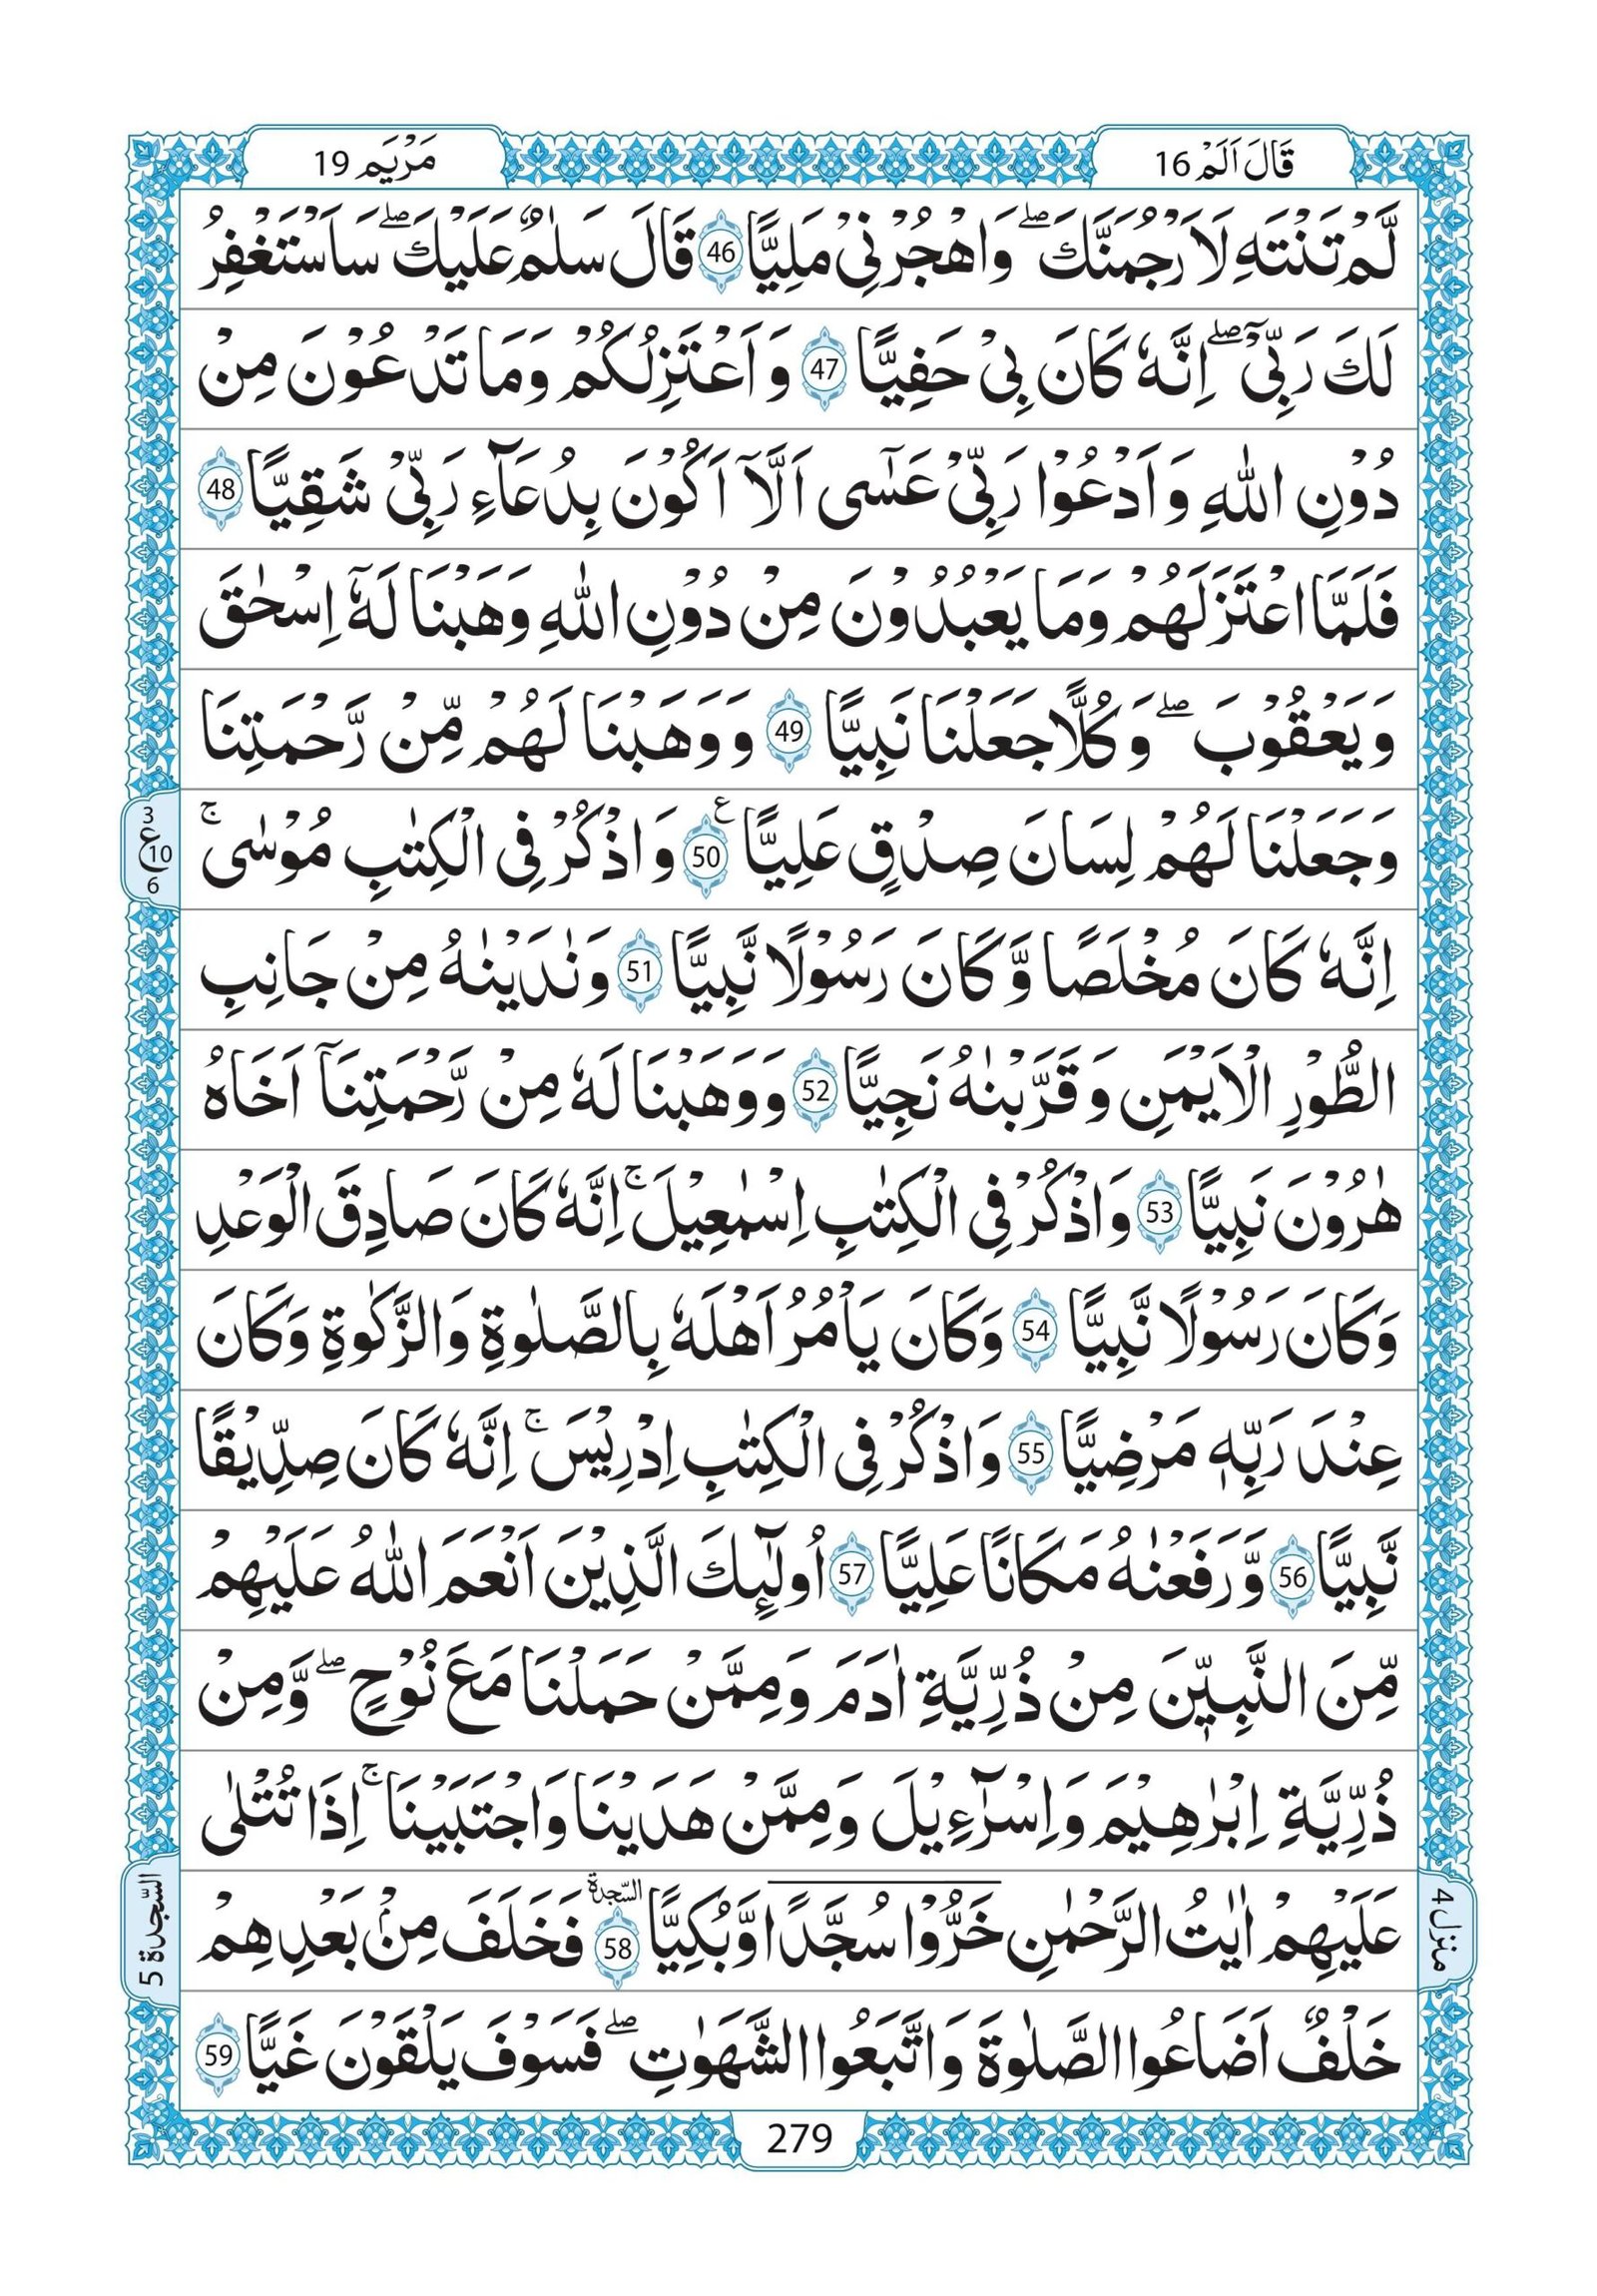 قَالَ اَلَمْ 16
مَرْيَم 19
لَّمْ تَنْتَهِ لَاَرْجُمَنَّكَ ۖ وَاهْجُرْنِيْ مَلِيًّا 46 قَالَ سَلٰمٌ عَلَيْكَ ۖ سَاَسْتَغْفِرُ
لَكَ رَبِّيْٓ ۖ اِنَّهٗ كَانَ بِيْ حَفِيًّا 47 وَاَعْتَزِلُكُمْ وَمَا تَدْعُوْنَ مِنْ
دُوْنِ اللّٰهِ وَاَدْعُوْا رَبِّيْ عَسٰٓى اَلَّآ اَكُوْنَ بِدُعَآءِ رَبِّيْ شَقِيًّا 48
فَلَمَّا اعْتَزَلَهُمْ وَمَا يَعْبُدُوْنَ مِنْ دُوْنِ اللّٰهِ وَهَبْنَا لَهٗٓ اِسْحٰقَ
وَيَعْقُوْبَ ۖ وَكُلًّا جَعَلْنَا نَبِيًّا 49 وَوَهَبْنَا لَهُمْ مِّنْ رَّحْمَتِنَا
وَجَعَلْنَا لَهُمْ لِسَانَ صِدْقٍ عَلِيًّا ع 50 وَاذْكُرْ فِي الْكِتٰبِ مُوْسٰى ۚ
3 ع 10 6
اِنَّهٗ كَانَ مُخْلَصًا وَّكَانَ رَسُوْلًا نَّبِيًّا 51 وَنٰدَيْنٰهُ مِنْ جَانِبِ
الطُّوْرِ الْاَيْمَنِ وَقَرَّبْنٰهُ نَجِيًّا 52 وَوَهَبْنَا لَهٗ مِنْ رَّحْمَتِنَآ اَخَاهُ
هٰرُوْنَ نَبِيًّا 53 وَاذْكُرْ فِي الْكِتٰبِ اِسْمٰعِيْلَ ۚ اِنَّهٗ كَانَ صَادِقَ الْوَعْدِ
وَكَانَ رَسُوْلًا نَّبِيًّا 54 وَكَانَ يَاْمُرُ اَهْلَهٗ بِالصَّلٰوةِ وَالزَّكٰوةِ وَكَانَ
عِنْدَ رَبِّهٖ مَرْضِيًّا 55 وَاذْكُرْ فِي الْكِتٰبِ اِدْرِيْسَ ۚ اِنَّهٗ كَانَ صِدِّيْقًا
نَّبِيًّا 56 وَّرَفَعْنٰهُ مَكَانًا عَلِيًّا 57 اُولٰٓئِكَ الَّذِيْنَ اَنْعَمَ اللّٰهُ عَلَيْهِمْ
مِّنَ النَّبِيّٖنَ مِنْ ذُرِّيَّةِ اٰدَمَ وَمِمَّنْ حَمَلْنَا مَعَ نُوْحٍ ۖ وَّمِنْ
ذُرِّيَّةِ اِبْرٰهِيْمَ وَاِسْرَآءِيْلَ وَمِمَّنْ هَدَيْنَا وَاجْتَبَيْنَا ۚ اِذَا تُتْلٰى
عَلَيْهِمْ اٰيٰتُ الرَّحْمٰنِ خَرُّوْا سُجَّدًا وَّبُكِيًّا السّجدة 58 فَخَلَفَ مِنْۢ بَعْدِهِمْ
منزل 4
السّجدة 5
خَلْفٌ اَضَاعُوا الصَّلٰوةَ وَاتَّبَعُوا الشَّهَوٰتِ ۖ فَسَوْفَ يَلْقَوْنَ غَيًّا 59
279